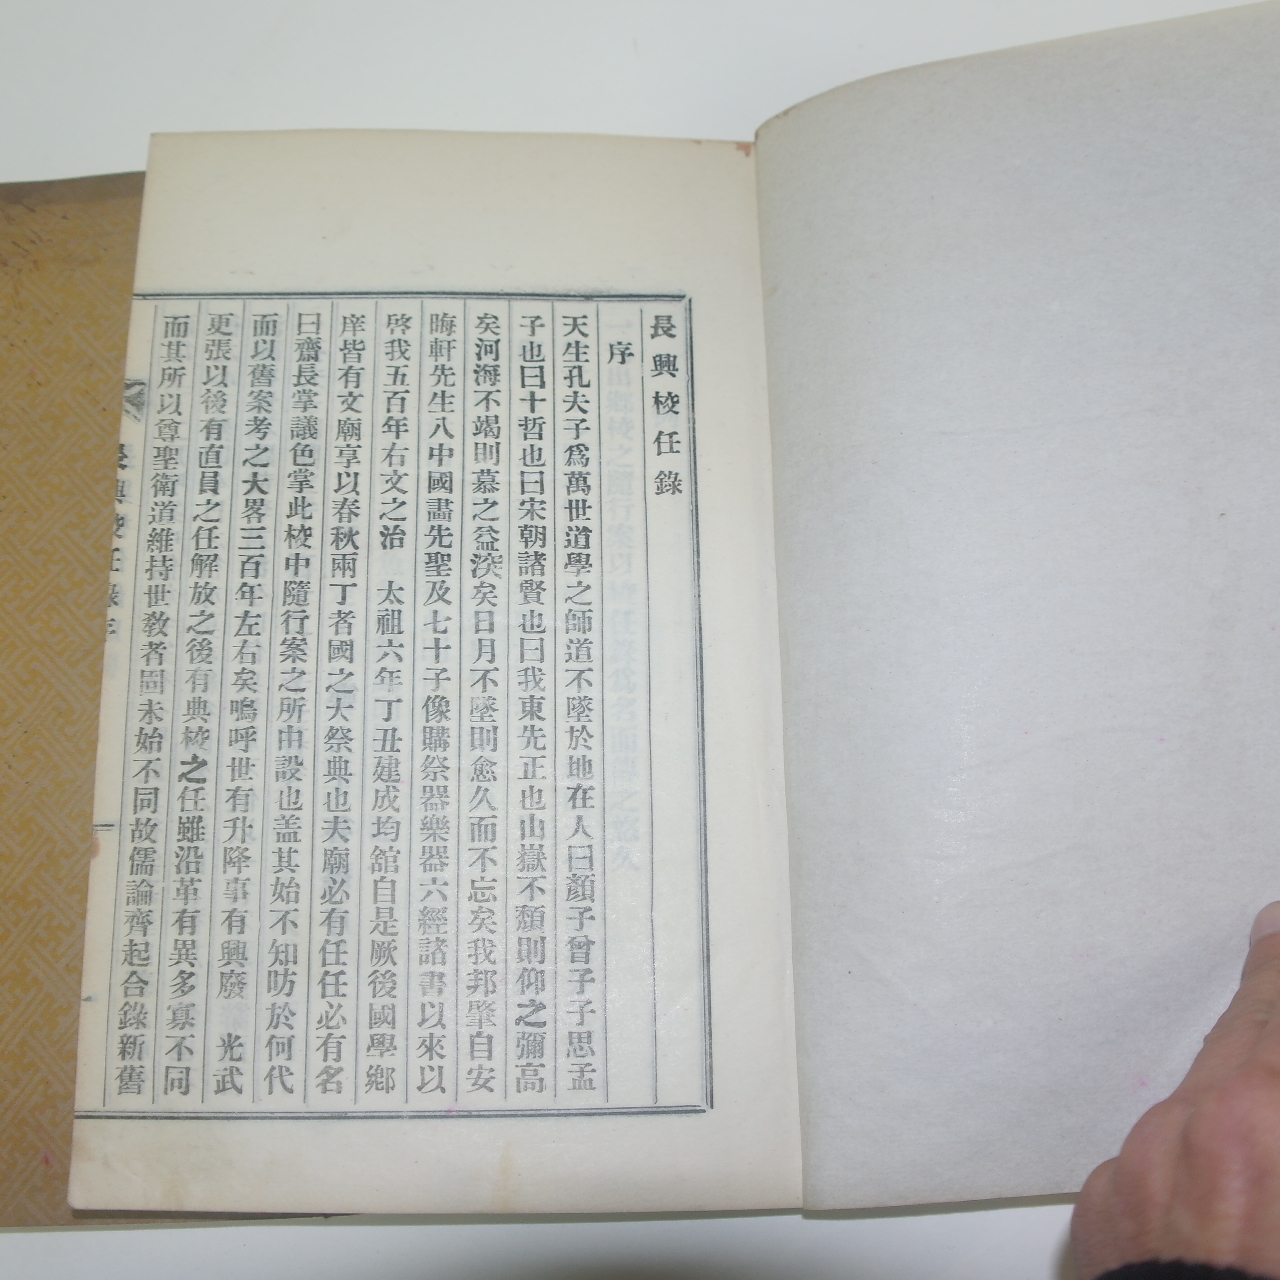 長興校任錄
序
天生孔夫子爲萬世道學之師道不墜於地在人曰顏子曾子子思孟
子也曰十哲也曰宋朝諸賢也曰我東先正也山嶽不頹則仰之彌高
矣河海不竭則慕之益深矣日月不墜則愈久而不忘矣我邦肇自安
晦軒先生入中國畵先聖及七十子像購祭器樂器六經諸書以來以
啓我五百年右文之治 太祖六年丁丑建成均舘自是厥後國學鄕
庠皆有文廟享以春秋兩丁者國之大祭典也夫廟必有任任必有名
曰齋長掌議色掌此校中隨行案之所由設也盖其始不知昉於何代
而以舊案考之大畧三百年左右矣嗚呼世有升降事有興廢 光武
更張以後有直員之任解放之後有典校之任雖沿革有異多寡不同
而其所以尊聖衛道維持世敎者固未始不同故儒論齊起合錄新舊
長興校任錄序